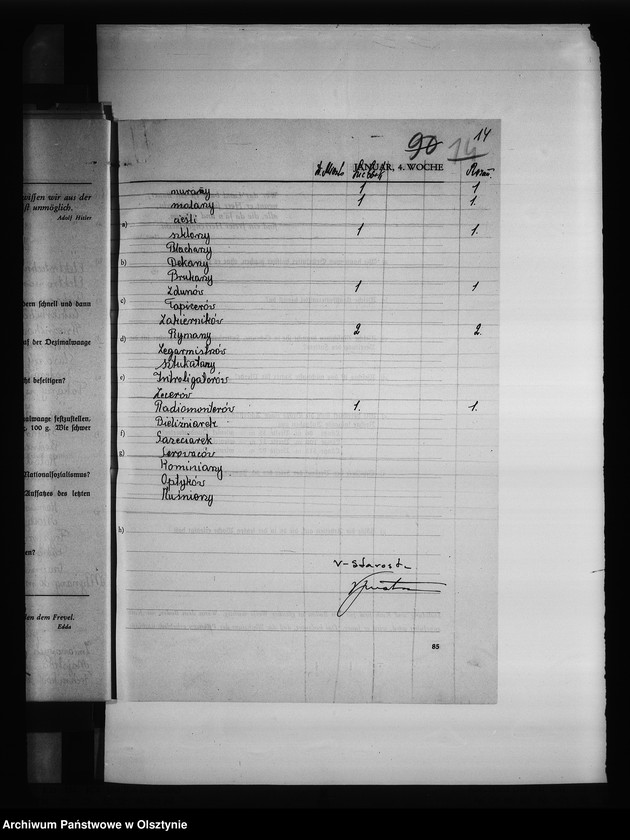 14
90 14
JANUAR, 4. WOCHE
murarzy 1 1
malarzy 1 1.
cieśli
a)
szklarzy 1 1.
Blacharzy
b)
Dekarzy
Brukarzy
Zdunów 1 1
c)
Tapicerów
Rymarzy 2 2.
d)
Zegarmistrzów
Sztukatarzy
e)
Introligatorów
Zecerów
Radiomonterów 1. 1.
Bieliźniarek
f)
g)
Kominiarzy
Optyków
Kuśnierzy
h)
V-Starosta
85
wissen wir aus der
ist unmöglich.
Adolf Hitler
dern schnell und dann
auf der Dezimalwaage
cht beseitigen?
alwaage festzustellen.
g, 100 g. Wie schwer
Nationalsozialismus?
Aufsatzes des letzten
en?
den dem Frevel.
Edda
Archiwum Państwowe w Olsztynie